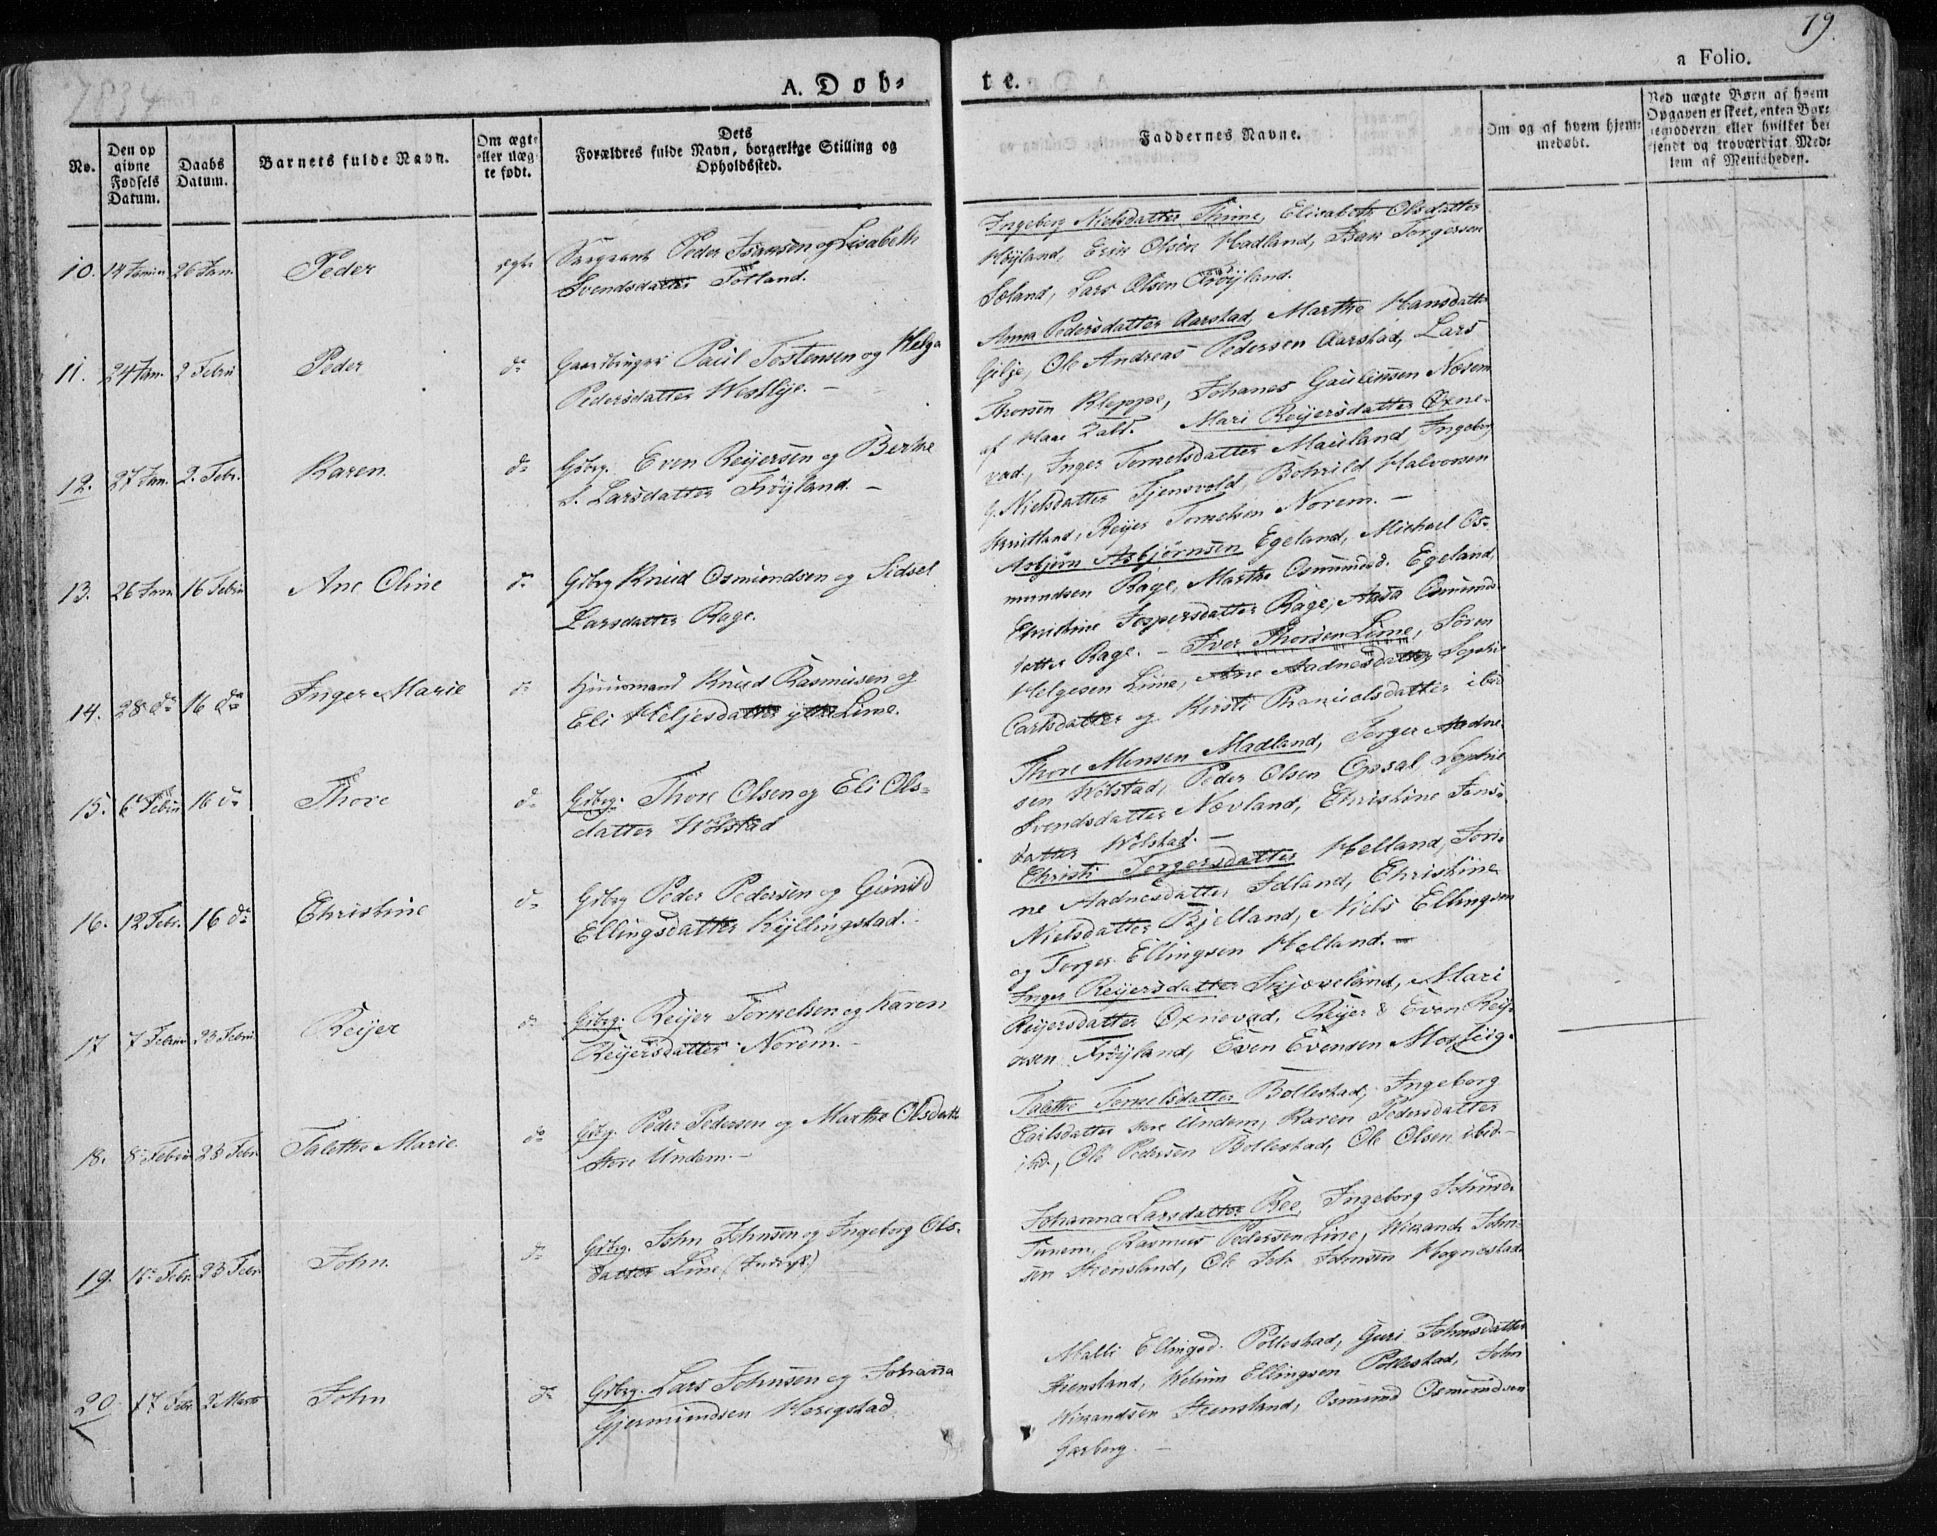 1834
19.
A. Døb-
te.
a Folio.
No.
Den op
givne
Fødsels
Datum.
Daabs
Datum.
Barnets fulde Navn.
Om ægte
eller uæg
te født.
Dets
Forældres fulde Navn, borgerlige Stilling og
Opholdssted.
Faddernes Navne.
Om og af hvem hjem-
medøbt.
Ved uægte Børn af hvem
Opgaven er skeet, enten Bar-
nemoderen eller hvilket be-
kjendt og troværdigt Med-
lem af Menigheden.
10. 14 Januar 26 Jan. Peder ægte Sargeant Peder Isaksen og Lisabeth
Svendsdatter Totland.
Ingeborg Nielsdatter Thime, Elisabeth Olsdatter
Høyland, Erik Olsen Hadland, Isak Torgersen
Søland, Lars Olsen Frøyland.
11. 24 Jan. 2 Febru Peder do Gaardbruger Paul Tostensen og Helga
Pedersdatter Westlye. -
Anna Pedersdatter Aarstad, Marthe Hansdatter
Gilje, Ole Andreas Pedersen Aarstad, Lars
Thorsen Kleppe, Johanes Gaulinsen Næsem
af Haae Pald.
12. 27 Jan. 2. Febr. Karen. do Gbrg. Even Reijersen og Berthe
S. Larsdatter Frøyland. -
Mari Reijersdatter Øxne-
vad, Inger Tornelsdatter Mauland, Ingeborg
G. Nielsdatter Tjensvold, Bohrild Halvorsen
Skruitland, Reijer Tornelsen Norem. -
13. 26 Jan 16 Febru Ane Oline do Gbrg Knud Osmundsen og Sidsel
Larsdatter Rage.
Asbjørn Asbjørnsen Egeland, Michael Os-
mundsen Rage, Marthe Osmundsd. Egeland,
Christine Jespersdatter Rage, Aasa Osmunds-
datter Rage. -
14. 28 do 16 do Inger Marie do Huusmand Knud Rasmusen og
Eli Heljesdatter ytre Lime.
Iver Thorsen Lime, Søren
Helgesen Lime, Ane Aadnesdatter, Sophie
Carlsdatter og Kirsti Phanuelsdatter ibid
15. 6 Febru 16 do Thore do Gbrg. Thore Olsen og Eli Ols-
datter Wølstad
Thore Monsen Madland, Torger Aadne-
sen Wølstad, Peder Olsen Opsal, Sophie
Svendsdatter Nævland, Christine Jens-
datter Wølstad. -
16. 12 Febr. 16 do Christine do Gbrg Peder Pedersen og Gunild
Ellingsdatter Kyllingstad.
Christi Torgersdatter Helland, Tori-
ne Aadnesdatter Idland, Christine
Nielsdatter Bjelland, Niels Ellingsen
og Torger Ellingsen Helland. -
17 7 Febru 23 Febru. Reijer do Gbrg. Reijer Tornelsen og Karen
Reijersdatter Norem. -
Inger Reijersdatter Skjæveland, Mari
Reijersdatter Øxnevad, Reijer & Even Reij-
ersen Frøyland, Even Evensen Mossiig.
18. 8 Febru 23 Febr. Talethe Marie do Gbrg. Peder Pedersen og Marthe Olsdatt
Store Undem. -
Talethe Tornelsdatter Bollestad, Ingeborg
Carlsdatter store Undem, Karen Pedersdatter
ibid., Ole Pedersen Bollestad, Ole Olsen ibid. -
19. 15 Febr. 23 Febr. John do Gbrg. John Johnsen og Ingeborg Ols-
datter Line
Johanna Larsdatter Ree, Ingeborg Johnsd.
Tunem, Rasmus Pedersen Line, Wiland John-
sen Steensland, Ole Joh. Johnsen Hognestad
20 17 Febr 2 Marts John do Gbrg. Lars Johnsen og Johanna
Gjermundsen Herigstad.
Malli Ellingsd. Pollestad, Guri Johnsdatter
Steensland, Welum Ellingsen Pollestad, John
Wilandsen Steensland, Osmund Osmundsen
Garborg. -